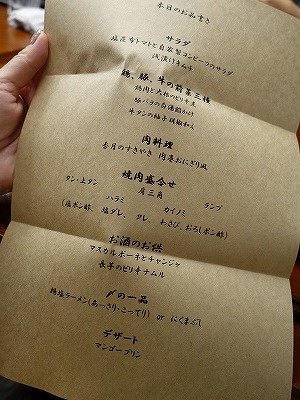 本日のお品書き
サラダ
塩昆布トマトと自家製コンビーフのサラダ
浅漬けキムチ
鶏、豚、牛の前菜三種
鶏肉と大根のピリ辛煮
豚バラの白湯餡かけ
牛タンの柚子胡椒和え
肉料理
香月のすきやき 肉巻おにぎり風
焼肉盛合せ
タン・上タン 肩三角 ランプ
ハラミ カイノミ
(塩ポン酢、塩ダレ、タレ、わさび、おろしポン酢)
お酒のお供
マスカルポーネとチャンジャ
長芋のピリ辛ナムル
〆の一品
鶏塩ラーメン(あっさり・こってり) or にくまぶし
デザート
マンゴープリン